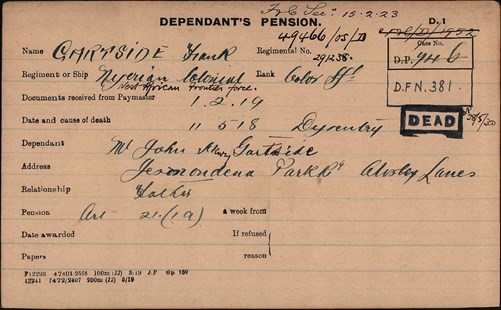 F&C Sec: 15.2.23
DEPENDANT'S PENSION. D.1
49466/05/D
Name GARTSIDE Frank Regimental No. 291238. Case No. D.P. 946
Regiment or Ship Nigerian Colonial Rank Color Sgt
West African Frontier force. D.F.N. 381.
Documents received from Paymaster 1.2.19
Date and cause of death 11 5 18 Dysentry DEAD
Dependant Mr John Gartside
Address Jesmondena Park Rd Lancs
Relationship Father
Pension Art 21.(1a) a week from
Date awarded If refused,
Papers reason
F12293 47401/2558 100m (JJ) 3/19 J.P Gp. 159
13241 7472/2407 200m (JJ) 5/19